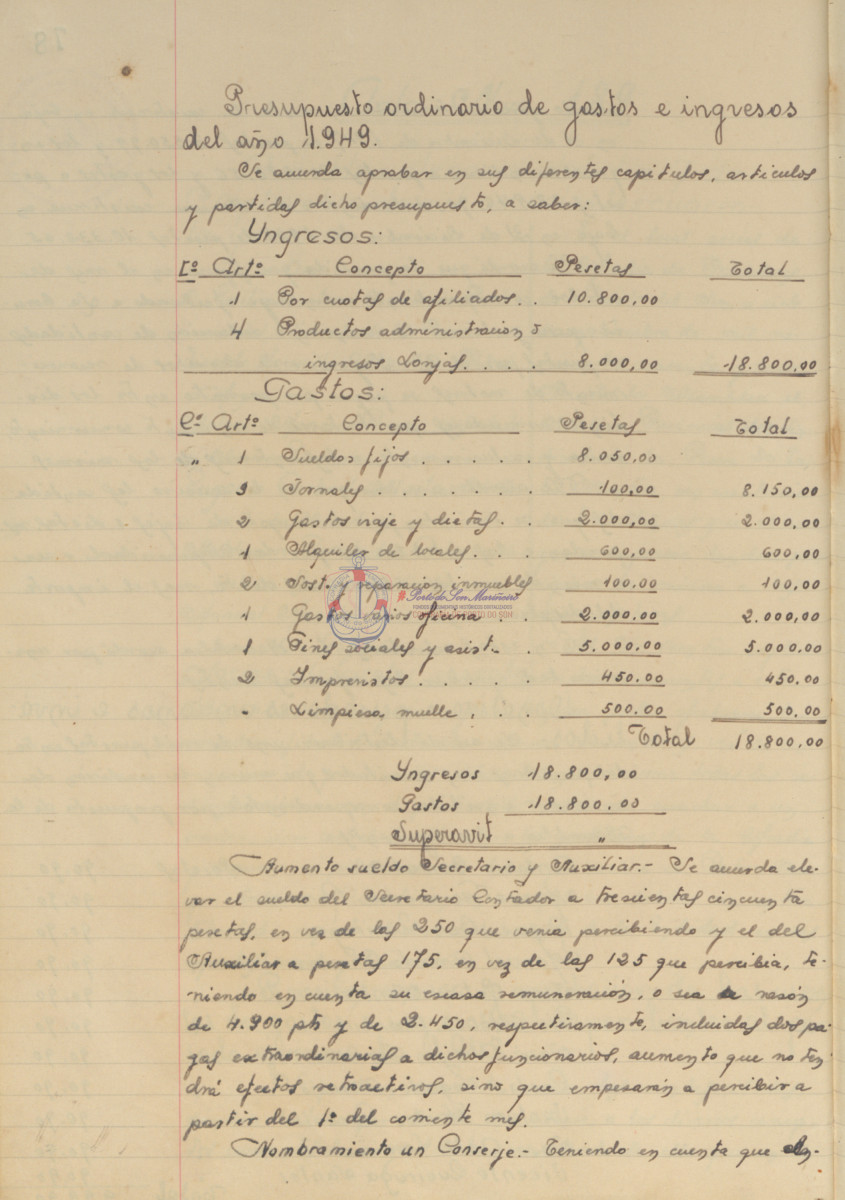 Presupuesto ordinario de gastos e ingresos
del año 1.949.
Se acuerda aprobar en sus diferentes capitulos, articulos
y partidas dicho presupuesto, a saber:
Yngresos:
Cº Artº Concepto Pesetas Total
1 Por cuotas de afiliados . . 10.800,00
4 Productos administracion é
ingresos Lonjas. . . . 8.000,00 18.800,00
Gastos:
Cº Artº Concepto Pesetas Total
„ 1 Sueldos fijos . . . . . 8.050,00
3 Jornales . . . . . . . 100,00 8.150,00
2 Gastos viaje y dietas . . 2.000,00 2.000,00
1 Alquiler de locales . . . 600,00 600,00
2 Sost. y reparacion inmuebles 100.00 100,00
1 Gastos varios oficina . . 2.000.00 2.000,00
1 Fines sociales y asist. . 5.000.00 5.000.00
2 Imprevistos . . . . . 450.00 450.00
- Limpiesa muelle . . . 500.00 500.00
Total 18.800,00
Porto do Son Mariñeiro
Yngresos 18.800,00
Gastos 18.800.00
Superavit „
Aumento sueldo Secretario y Auxiliar.- Se acuerda ele-
var el sueldo del Secretario Contador a trescientas cincuenta
pesetas, en vez de las 250 que venia percibiendo y el del
Auxiliar a pesetas 175, en vez de las 125 que percibia, te-
niendo en cuenta su escasa remuneración, o sea a rasón
de 4.900 pts y de 2.450, respectivamente, incluidas dos pa-
gas extraordinarias a dichos funcionarios, aumento que no ten-
drá efectos retroactivos, sino que empesarán a percibir a
partir del 1º del corriente mes.
Nombramiento un Conserje.- Teniendo en cuenta que